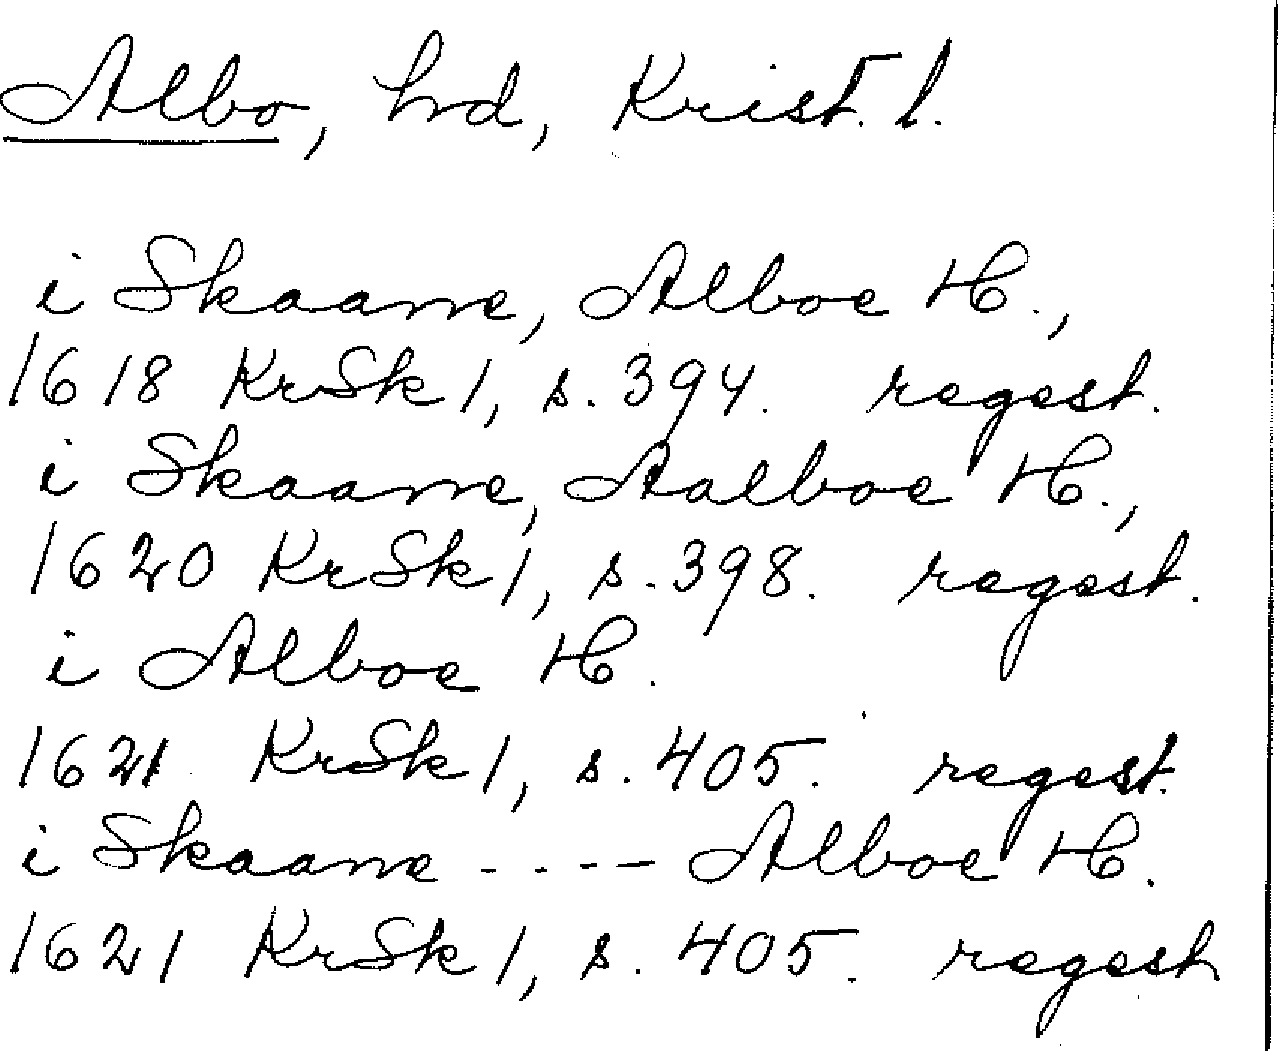 Albo, hd, Krist. l.
i Skaane, Alboe H.,
1618 KrSk 1, s. 394. regest.
i Skaane, Aalboe H.,
1620 KrSk 1, s. 398. regest.
i Alboe H.
1621 KrSk 1, s. 405. regest.
i Skaane - - - - Alboe H.
1621 KrSk 1, s. 405. regest